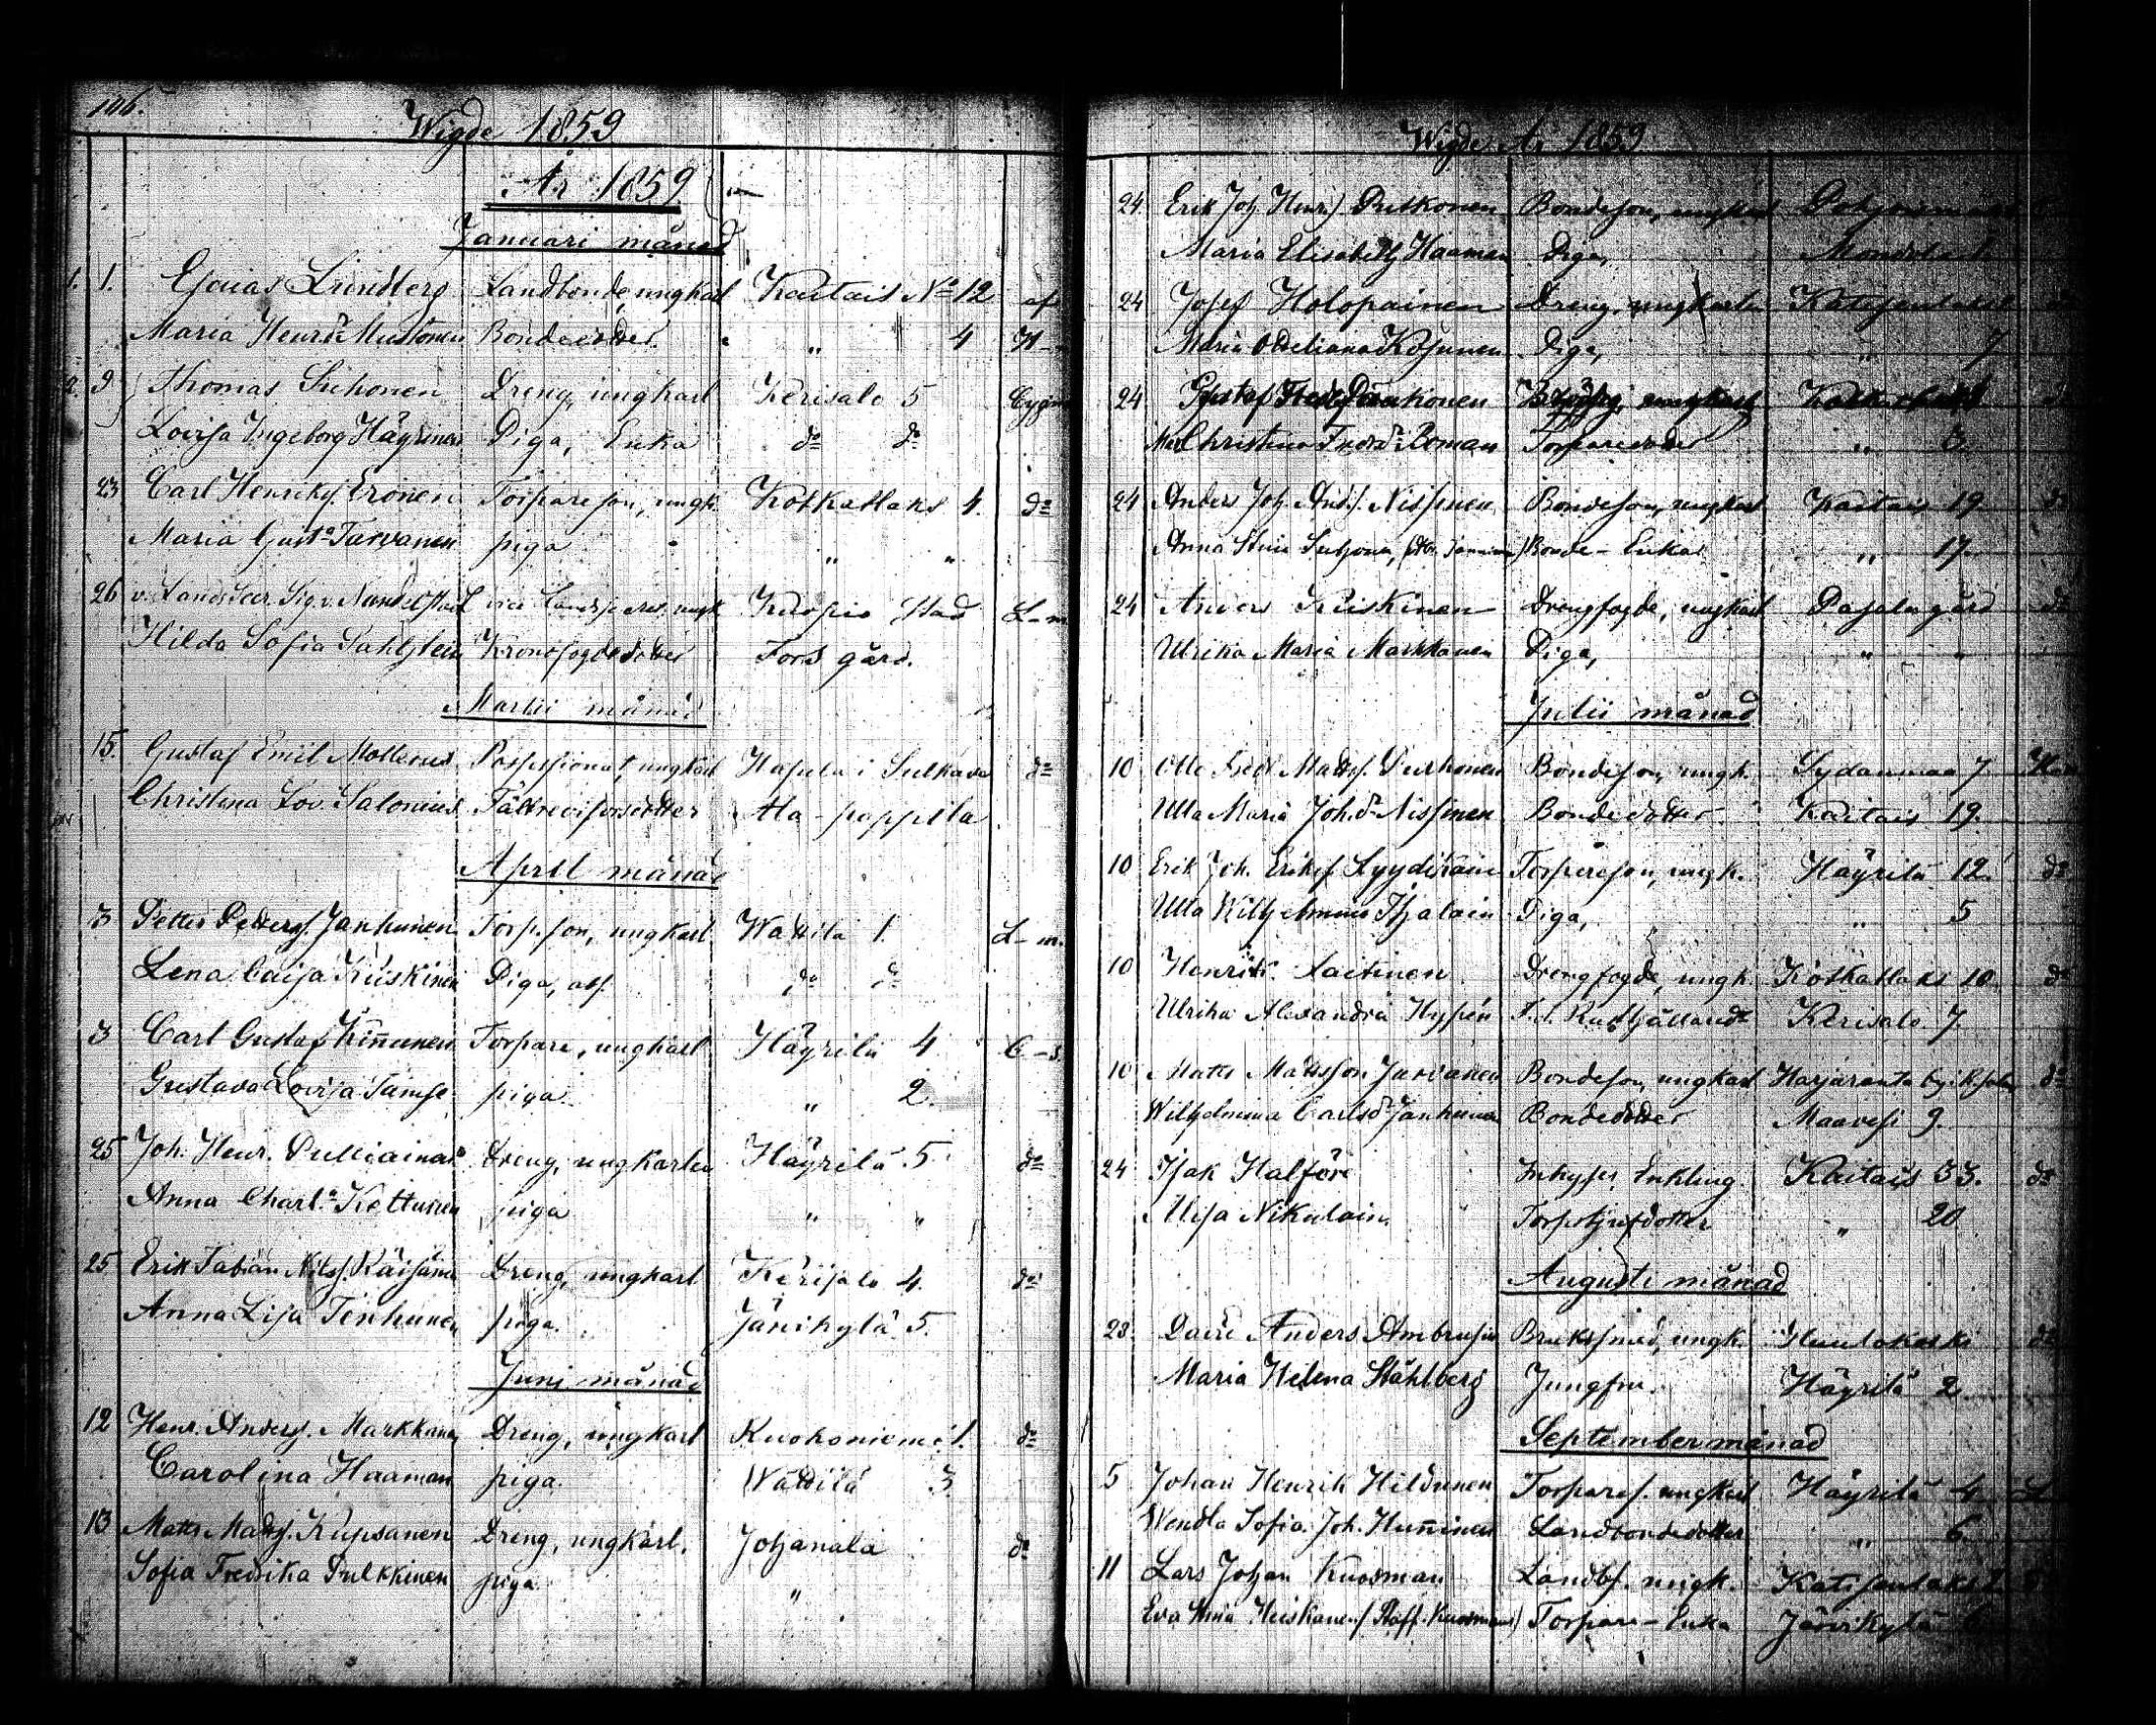 106.
Wigde 1859
År 1859
Januari månad
1. 1. Esaias Lundberg Landbonde, ungkarl Kaitais No 12
Maria Henrsdr Mustonen Bondedotter " 4 H
2. 9 Thomas Suhonen Dreng, ungkarl Kerisalo 5
Lovisa Ingeborg Häyrinen Piga, Enka do do
23 Carl Henriks. Eronen Torpareson, ungk. Kotkatlaks 4. do
Maria Gusta Tarvanen piga " "
26 v. Landssecr. Sig. v. Nandelstadt vice Landssecr. ungk. Kuopio stad L-m
Hilda Sofia Sahlstein Kronofogdedotter Fors gård.
Martii månad
15. Gustaf Emil Mollerus Possessionat, ungkarl Hasula i Sulkava do
Christina Lov. Salonius Fältrevisorsdotter Ala-poppila
April månad
3 Petter Petters. Janhunen Torp. son, ungkarl Wattila 1. L-m.
Lena Caisa Kiiskinen Piga, do do
3 Carl Gustaf Kin̄unen Torpare, ungkarl Häyrilä 4 C-s.
Gustava Lovisa piga " 2.
25 Joh. Henr. Pulliainen Dreng, ungkarlen Häyrilä 5 do
Anna Charl. Kettunen piga " "
25 Erik Fabian Nilss. Räisänen Dreng, ungkarl Kerisalo 4. do
Anna Lisa Tenhunen piga. Järvikylä 5.
Juni månad
12 Henr. Anders. Markkanen Dreng, ungkarl Kuokoniemi 1. do
Carolina Haaman piga. Wättilä 3
13 Matts Matss. Kupsanen Dreng, ungkarl. Johanala do
Sofia Fredrika Pulkkinen piga "
Wigde År 1859
24. Erik Joh. Henr. Pitkonen Bondeson, ungkarl
Maria Elisabeth Haaman Piga,
24 Josef Holopainen Dreng, ungkarlen Katisenlaks
Maria Kosunen Piga, " 7
24 Gustaf ungkarl
Christina Fredrsdr Roman Torparedotter " 3.
24 Anders Joh. Ands. Nissinen Bondeson, ungkarl Kaitais 19 do
Anna Stina Suhonen, Bonde-Enka " 17.
24 Anders Kiiskinen Drengfogde, ungkarl Pasala gård do
Ulrika Maria Markkanen Piga, " "
Julii månad
10 Otto Fredr Matss. Purhonen Bondeson, ungk. Sydänmaa 7
Ulla Maria Joh.dr Nissinen Bondedotter Kaitais 19.
10 Erik Joh. Eriks. Lyydikäin Torpareson, ungk. Häyrilä 12. do
Ulla Wilhelmina Piga, " 5
10 Henrik Laitinen Drengfogde, ungk. Kotkatlaks 10. do
Ulrika Alexandra Hyssén Kerisalo 7.
10 Matts Mattsson Jarvanen Bondeson, ungkarl Harjaranta by i do
Wilhelmina Carlsdr Janhunen Bondedotter Maavesi 9.
24 Isak Halfors Inhyses Enkling. Kaitais 33. do
Ulsa Nikulain. " 20
Augusti månad
28. David Anders Ambrosius Bruksmed, ungk. Huutokoski do
Maria Helena Ståhlberg Jungfru. Häyrilä 2
September månad
5 Johan Henrik Hildunen Torpares. ungkarl Häyrilä 4
Wendla Sofia Joh. Hun̄inen Landbondedotter " 6.
11 Lars Johan Kuosman Landbs. ungk. Katisenlaks
Eva Stina Heiskanen (Staff. Kuosmans) Torpare-Enka Järvikylä